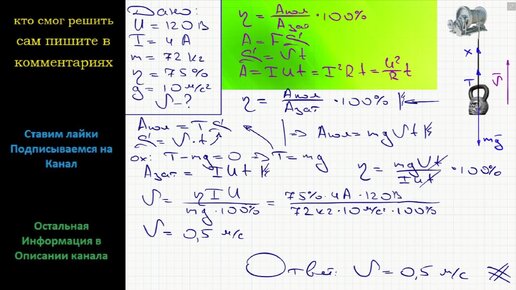 кто смог решить
сам пишите в
комментариях
Ставим лайки
Подписываемся на
Канал
Остальная
Информация в
Описании канала
Дано:
U = 120 В
I = 4 А
m = 72 кг
η = 75%
g = 10 м/с²
υ - ?
η = Aпол/Aзат · 100%
A = FS
S = υt
A = IUt = I²Rt = U²/R t
η = Aпол/Aзат · 100%
Aпол = TS
S = υ·t
=> Aпол = mgυt
ox: T - mg = 0 => T = mg
Aзат = IUt
η = mgυt/IUt · 100%
υ = ηIU/mg·100% = 75%·4А·120В/72кг·10м/с²·100%
υ = 0,5 м/с
Ответ: υ = 0,5 м/с
x
T
υ
mg